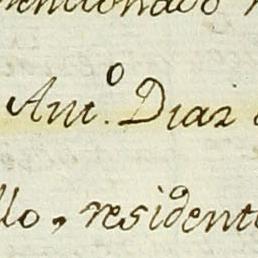 mencionado
Ant.º Diaz
llo, resident